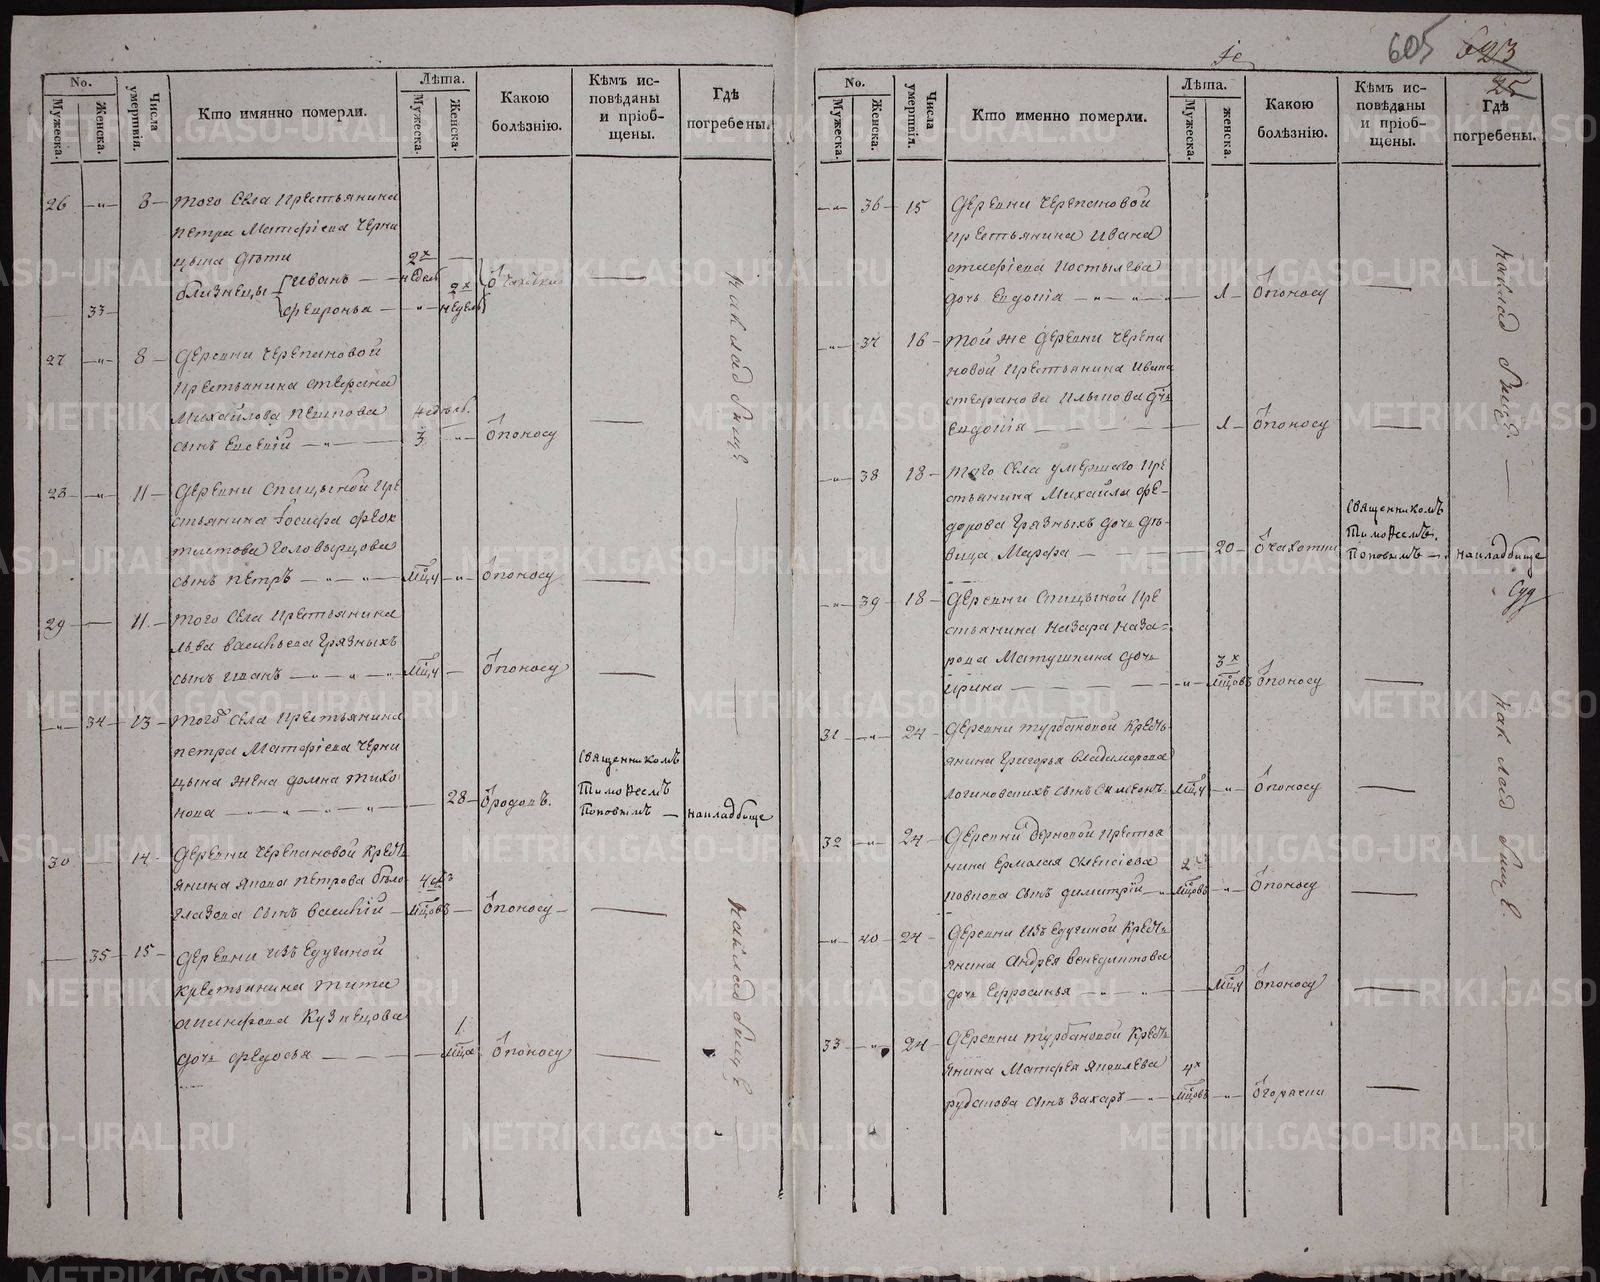 605
623
25
No.
Мужеска.
Женска.
Числа умертвія.
Кто имянно померли.
Лѣта.
Мужеска.
Женска.
Какою
болѣзнію.
Кѣмъ ис-
повѣданы
и пріоб-
щены.
Гдѣ
погребены.
26 8 того села крестьянина
петра Матфіева Черни
цына дѣти 2х
близнецы Иванъ недель
33 Февронья 2х недель
27 8 Деревни Черепановой
крестьянина стефана
Михайлова недель
сынъ Евсевій 3 Ѿ поносу
28 11 Деревни Спицыной кре
стьянина Іосифа феок
тистова Головырцова
сынъ петръ мцу Ѿ поносу
29 11 того села крестьянина
льва васильева Грязныхъ
сынъ иванъ мцу Ѿ поносу
34 13 того села крестьянина
петра Матфіева Черни
цына жена домна тихо
нова 28 Ѿ родовъ.
священникомъ
Тимофеемъ
Поповымъ
на кладбище
30 14 Деревни Черепановой крест
янина якова петрова бѣло
глазова сынъ василій 4 мцовъ Ѿ поносу
35 15 Деревни Изъедугиной
крестьянина тита
Кузнецова
дочь федосья 1 мца Ѿ поносу
на кладбище
на кладбище
No.
Мужеска.
Женска.
Числа умертвія.
Кто именно померли.
Лѣта.
Мужеска.
женска.
Какою
болѣзнію.
Кѣмъ ис-
повѣданы
и пріоб-
щены.
Гдѣ
погребены.
36 15 Деревни Черепановой
крестьянина Ивана
Костылева
дочь Евдокія 1 Ѿ поносу
37 16 той же Деревни Черепа
новой крестьянина Ивана
стефанова дочь
Евдокія 1 Ѿ поносу
38 18 того села умершаго кре
стьянина Михайла фе-
дорова Грязныхъ дочь дѣ-
вица Марфа 20 Ѿ чахотки
священникомъ
Тимофеемъ.
Поповымъ
на кладбище
39 18 Деревни Спицыной кре
стьянина Назара Наза-
рова Матушкина дочь
ирина 3х мцовъ Ѿ поносу
31 24 Деревни турбановой крест
янина Григорья владимерова
Логиновскихъ сынъ симеонъ мцу Ѿ поносу
32 24 Деревни Дерновой крестья
нина Ермолая Алексіева
сынъ димитрій 2 мцовъ Ѿ поносу
40 24 Деревни Изъедугиной крест
янина Андрея венедиктова
дочь Ефросинья мцу Ѿ поносу
33 24 Деревни турбановой крест
янина Матфея яковлева
рубанова сынъ Захаръ 4х мцовъ Ѿ горячки
на кладбище
на кладбище
METRIKI.GASO-URAL.RU